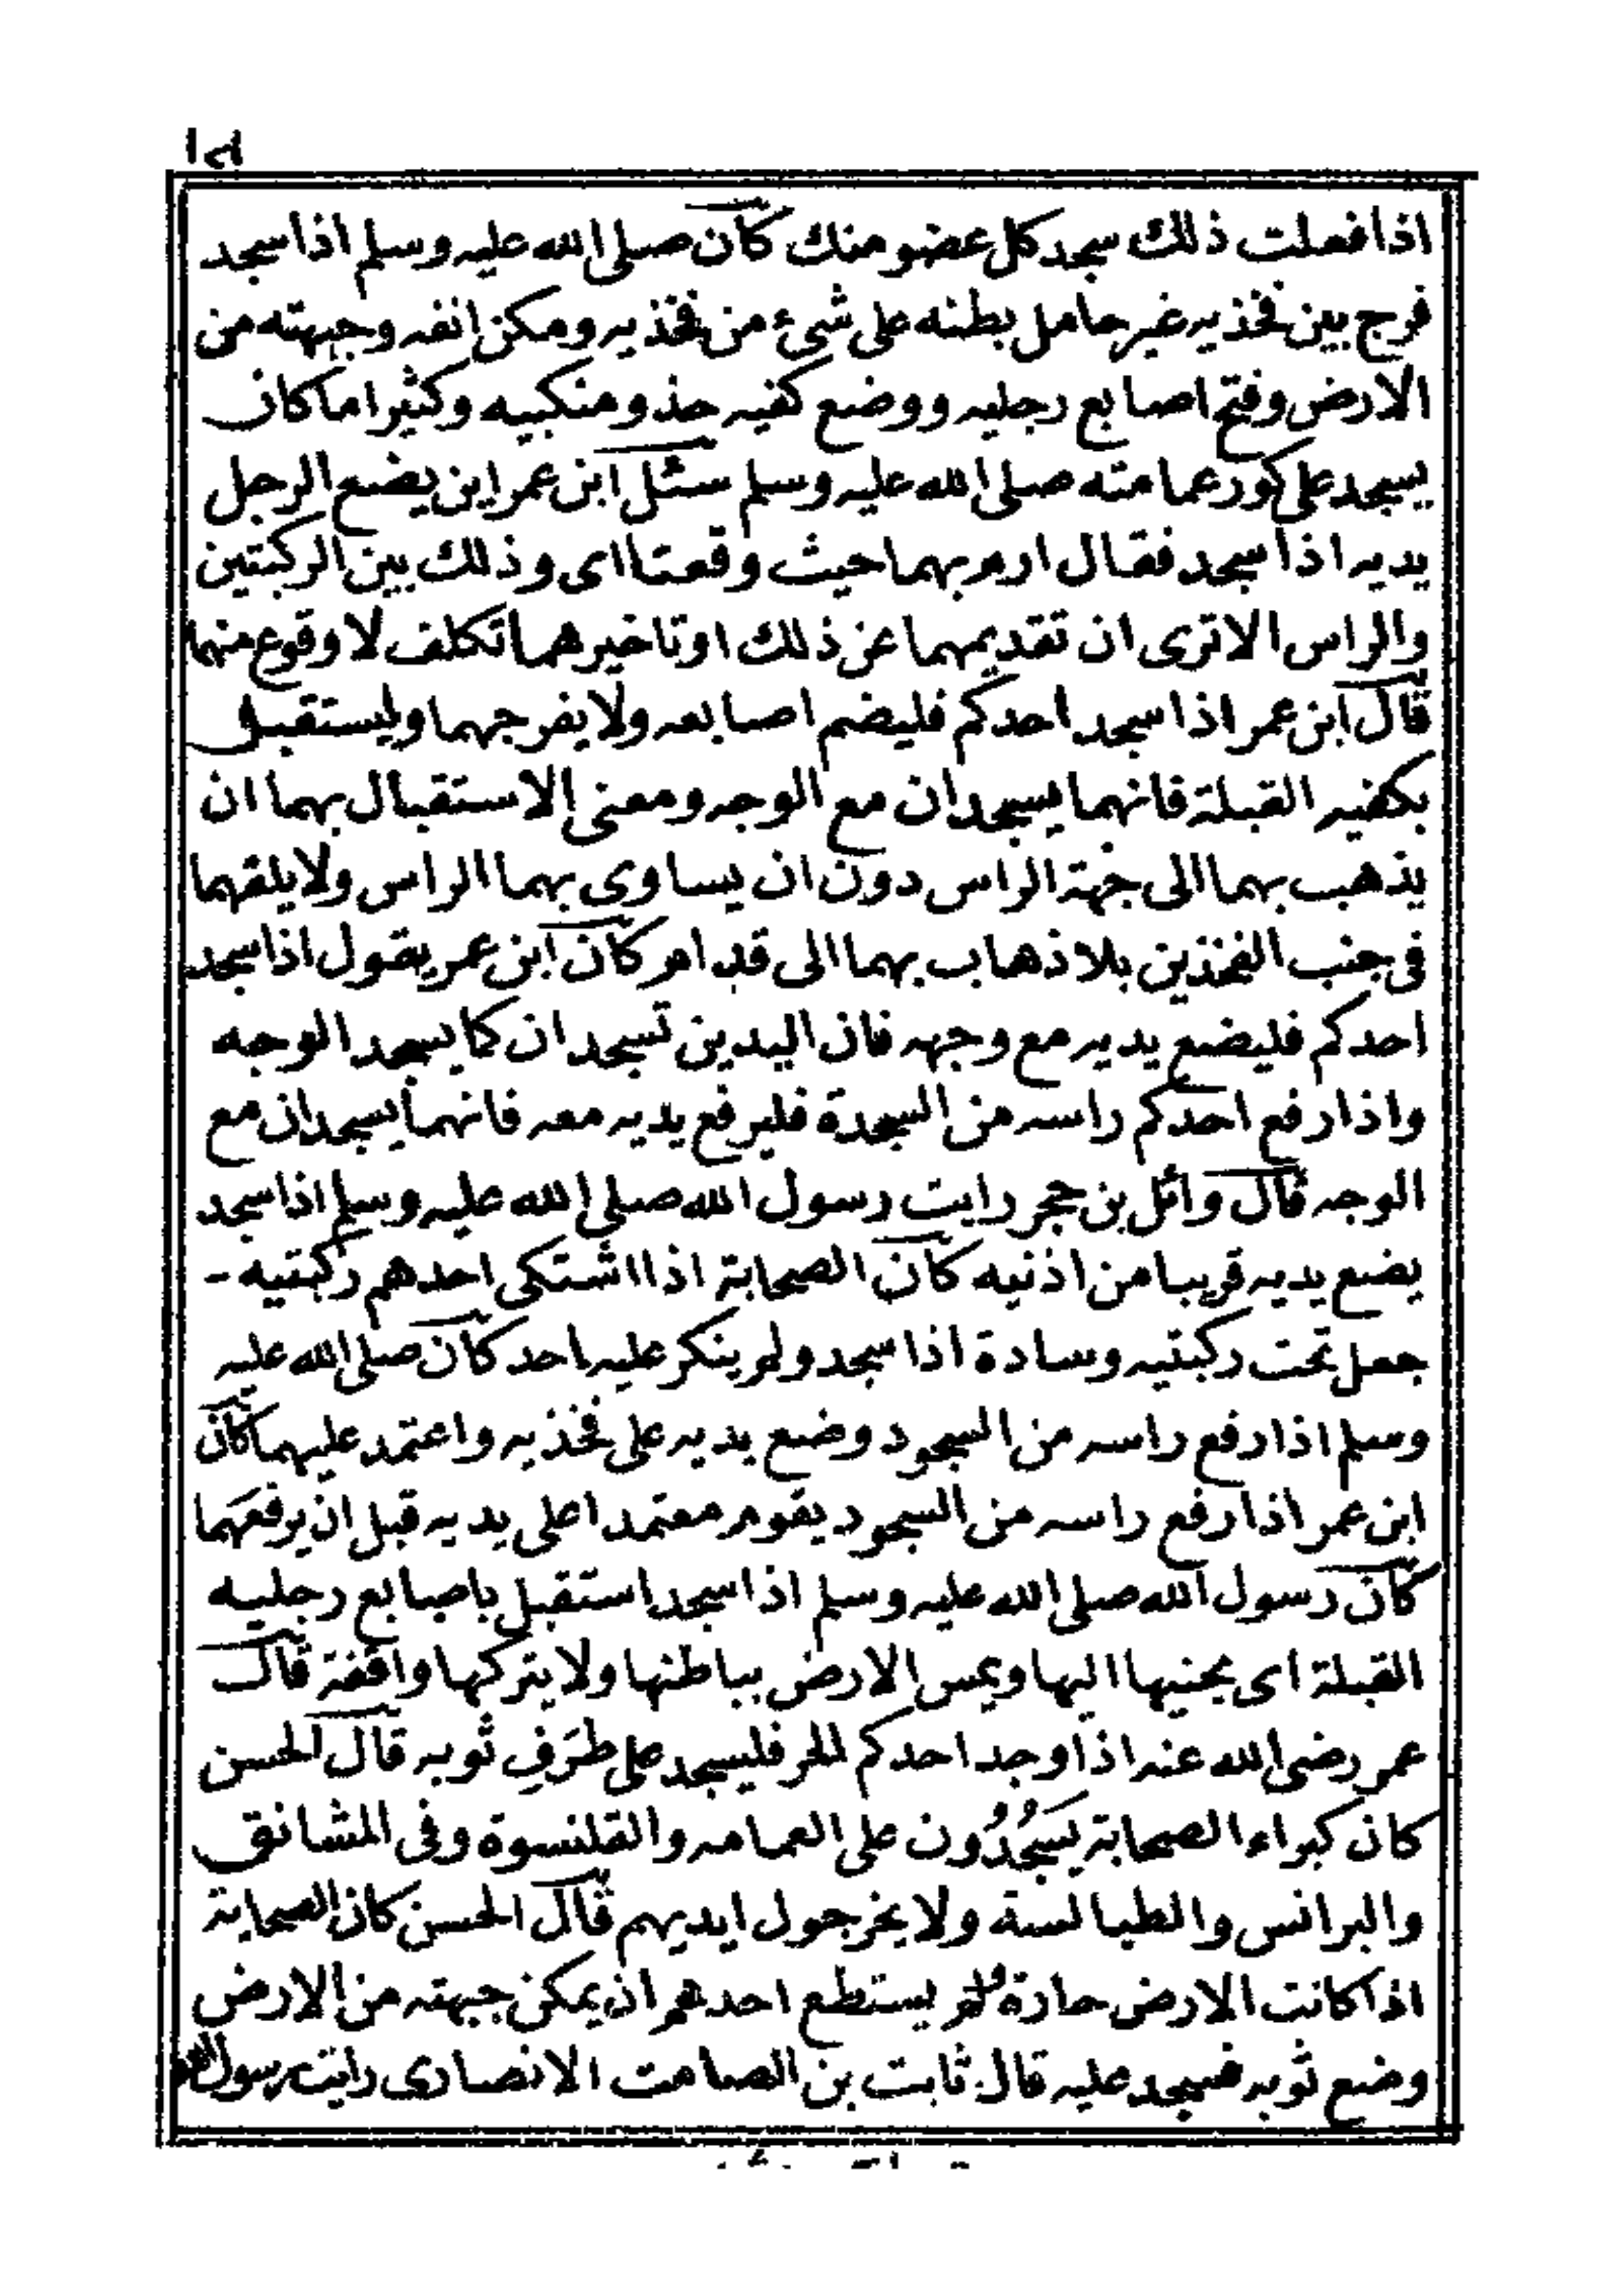 اذا فعلت ذلك سجد كل عضو منك كان صلى الله عليه وسلم اذا سجد
فرج بين فخذيه غير حامل بطنه على شئ من فخذيه ومكن انفه وجبهته من
الارض وفتح اصابع رجليه ووضع كفيه حذو منكبيه وكثيرا ما كان
يسجد على كور عمامته صلى الله عليه وسلم سئل ابن عمر اين يضع الرجل
يديه اذا سجد فقال ارم بهما حيث وقعتا اى وذلك بين الركبتين
والراس الا ترى ان تقديمهما عن ذلك او تاخيرهما تكلف لا وقوع منهما
قال ابن عمر اذا سجد احدكم فليضم اصابعه ولا يفرجهما وليستقبل
بكفيه القبلة فانهما يسجدان مع الوجه ومعنى الاستقبال بهما ان
يذهب بهما الى جهة الراس دون ان يساوى بهما الراس ولا يلقهما
فى جنب الفخذين بلا ذهاب بهما الى قدام كان ابن عمر يقول اذا سجد
احدكم فليضع يديه مع وجهه فان اليدين تسجدان كما يسجد الوجه
واذا رفع احدكم راسه من السجدة فليرفع يديه معه فانهما يسجدان مع
الوجه قال وائل بن حجر رايت رسول الله صلى الله عليه وسلم اذا سجد
يضع يديه قريبا من اذنيه كان الصحابة اذا اشتكى احدهم ركبتيه -
جعل تحت ركبتيه وسادة اذا سجد ولم ينكر عليه احد كان صلى الله عليه
وسلم اذا رفع راسه من السجود وضع يديه على فخذيه واعتمد عليهما كان
ابن عمر اذا رفع راسه من السجود يقوم معتمدا على يديه قبل ان يرفعهما
كان رسول الله صلى الله عليه وسلم اذا سجد استقبل باصابع رجليه
القبلة اى يحنيها اليها ويمس الارض بباطنها ولا يتركها واقفة قال
عمر رضى الله عنه اذا وجد احدكم الحر فليسجد على طرف ثوبه قال الحسن
كان كبراء الصحابة يسجدون على العمامه والقلنسوة وفى المشانق
والبرانس والطيالسة ولا يخرجول ايديهم قال الحسن كان الصحابة
اذا كانت الارض حارة فلم يستطع احدهم ان يمكن جبهته من الارض
وضع ثوبه فسجد عليه قال ثابت بن الصامت الانصارى رايت رسول الله